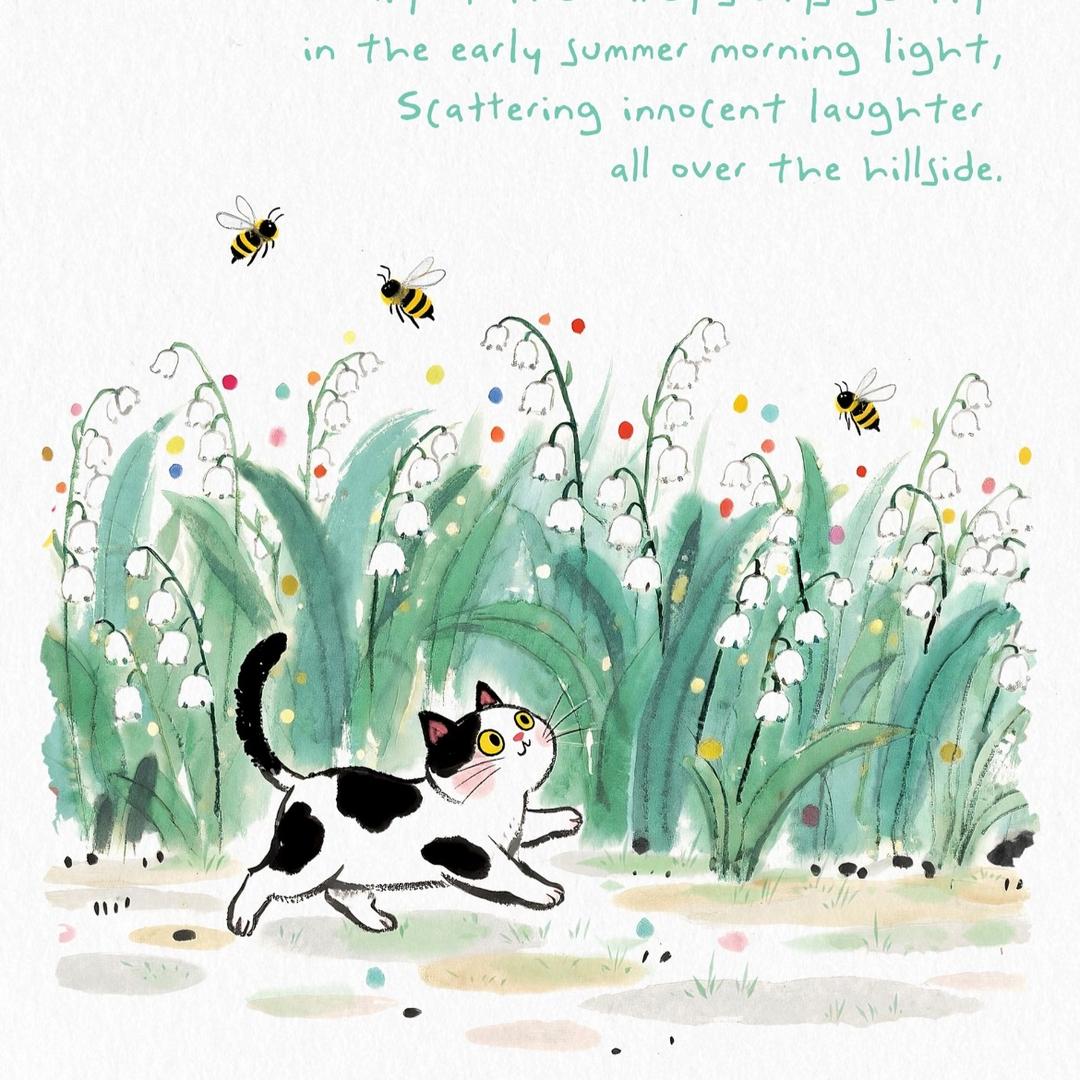 in the early summer morning light,
Scattering innocent laughter
all over the hillside.